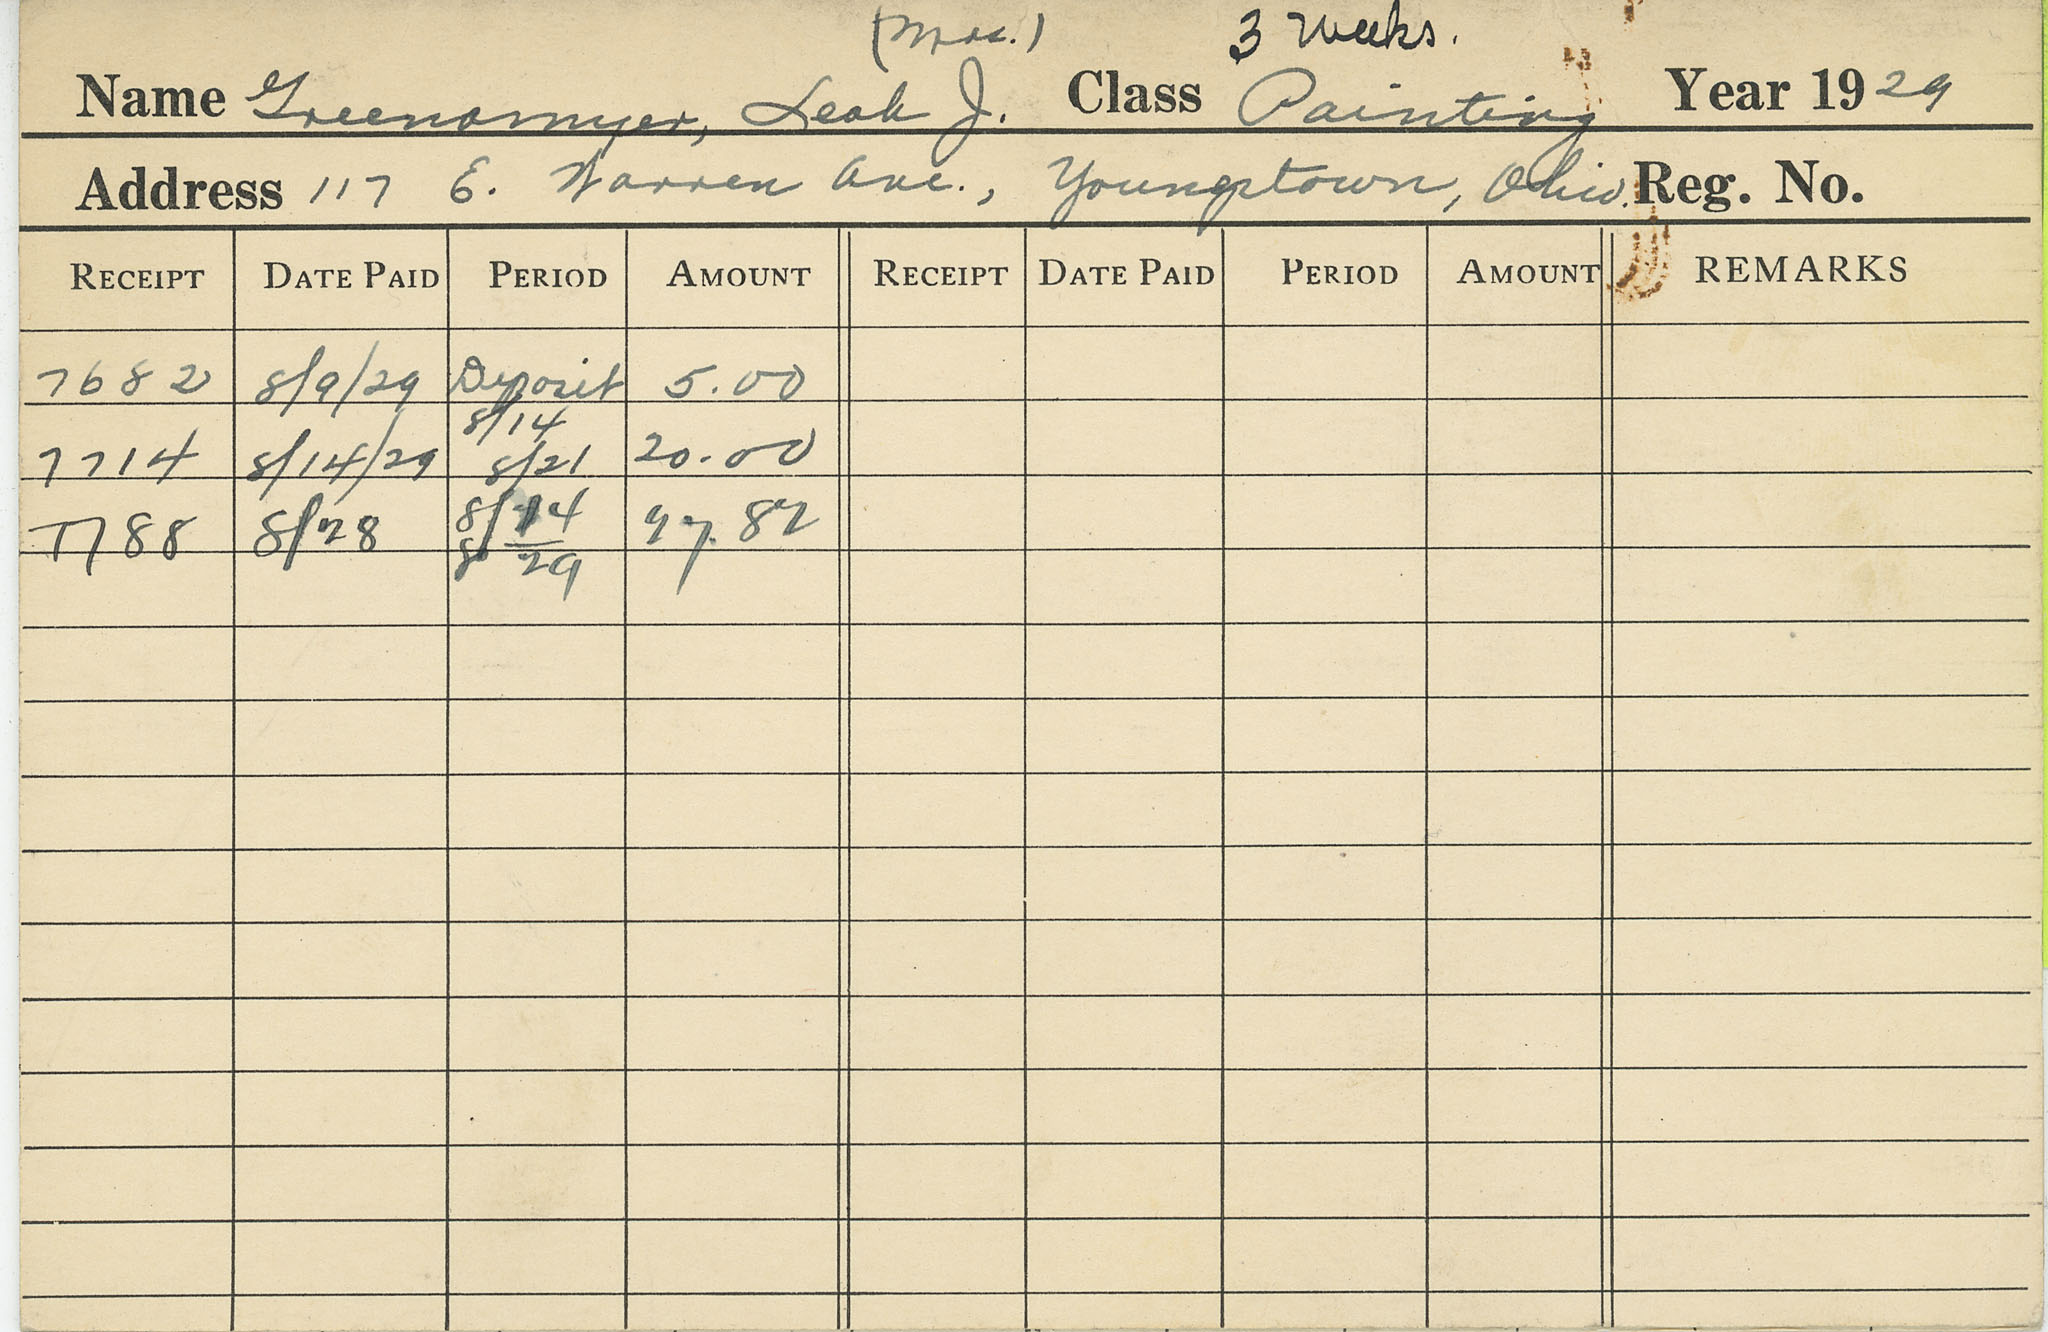 (Mrs.) 3 Weeks.
Name Greenamyer, Leah J. Class Painting Year 1929
Address 117 E. Warren Ave., Youngstown, Ohio. Reg. No.
RECEIPT DATE PAID PERIOD AMOUNT RECEIPT DATE PAID PERIOD AMOUNT REMARKS
7682 8/9/29 Deposit 5.00
8/14
7714 8/14/29 8/21 20.00
7788 8/28 8/14
8/29